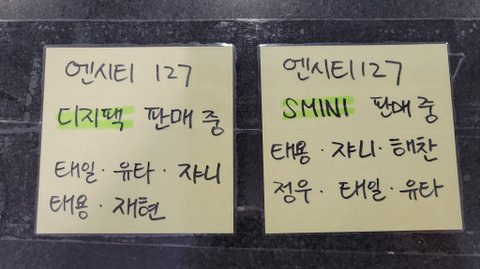 엔시티 127
디지팩 판매 중
태일 · 유타 · 쟈니
태용 · 재현
엔시티 127
SMINI 판매 중
태용 · 쟈니 · 해찬
정우 · 태일 · 유타